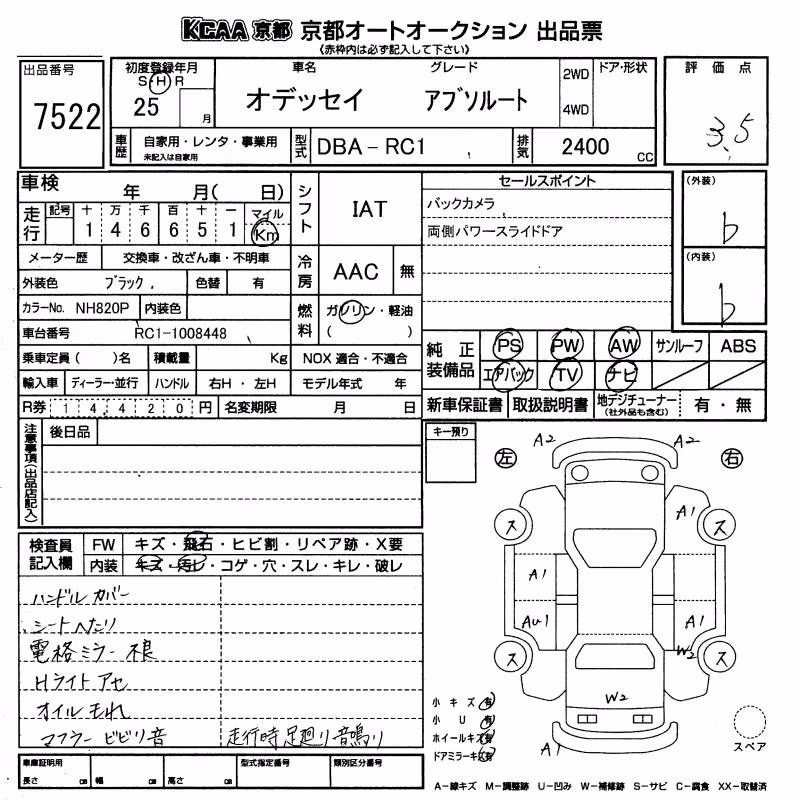 KCAA 京都 京都オートオークション 出品票
(赤枠内は必ず記入して下さい)
出品番号 7522
初度登録年月 S・H・R 25 月
車名 オデッセイ
グレード アブソルート
2WD 4WD ドア・形状
評価点 3.5
車歴 自家用・レンタ・事業用 未記入は自家用
型式 DBA-RC1
排気 2400 CC
車検 年 月( 日)
走行 記号 十 万 千 百 十 一 マイル Km
1 4 6 6 5 1
メーター歴 交換車・改ざん車・不明車
外装色 ブラック 色替 有
カラーNo. NH820P 内装色
車台番号 RC1-1008448
乗車定員( )名 積載量 Kg
輸入車 ディーラー・並行 ハンドル 右H・左H
R券 14,420 円 名変期限 月 日
シフト IAT
冷房 AAC 無
燃料 ガソリン・軽油 ( )
NOX 適合・不適合
モデル年式 年
セールスポイント
バックカメラ
両側パワースライドドア
(外装) b
(内装) b
純正装備品 PS PW AW サンルーフ ABS
エアバック TV ナビ
新車保証書 取扱説明書 地デジチューナー (社外品も含む) 有・無
注意事項(出品店記入) 後日品
キー預り
左 右
A2 A2
A1
ス ス
A1
AU1 A1
W2
ス ス
W2
A1
小キズ 有
小U 有
ホイールキズ 有
ドアミラーキズ 有
スペア
検査員記入欄 FW キズ・飛石・ヒビ割・リペア跡・X要
内装 キズ・汚レ・コゲ・穴・スレ・キレ・破レ
ハンドルカバー
シートへたり
電格ミラー不良
Hライトアセ
オイルモれ
マフラービビリ音 走行時足廻り音鳴り
車庫証明用 長さ cm 幅 cm 高さ cm
型式指定番号 類別区分番号
A-線キズ M-調整跡 U-凹み W-補修跡 S-サビ C-腐食 XX-取替済